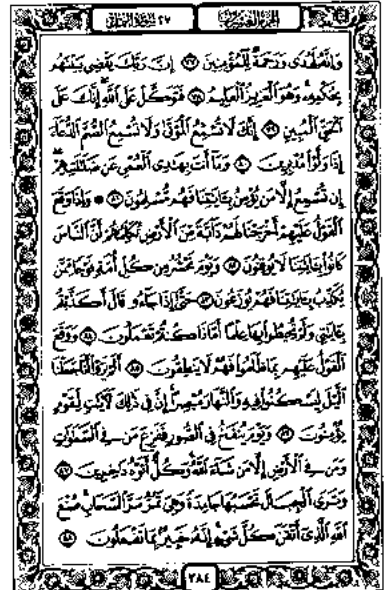 الجزء العشرون ٢٧ سورة النمل
وَإِنَّهُ لَهُدًى وَرَحْمَةٌ لِّلْمُؤْمِنِينَ ٧٧ إِنَّ رَبَّكَ يَقْضِى بَيْنَهُم
بِحُكْمِهِۦ وَهُوَ ٱلْعَزِيزُ ٱلْعَلِيمُ ٧٨ فَتَوَكَّلْ عَلَى ٱللَّهِ إِنَّكَ عَلَى
ٱلْحَقِّ ٱلْمُبِينِ ٧٩ إِنَّكَ لَا تُسْمِعُ ٱلْمَوْتَىٰ وَلَا تُسْمِعُ ٱلصُّمَّ ٱلدُّعَآءَ
إِذَا وَلَّوْا۟ مُدْبِرِينَ ٨٠ وَمَآ أَنتَ بِهَٰدِى ٱلْعُمْىِ عَن ضَلَٰلَتِهِمْ
إِن تُسْمِعُ إِلَّا مَن يُؤْمِنُ بِـَٔايَٰتِنَا فَهُم مُّسْلِمُونَ ٨١ ۞ وَإِذَا وَقَعَ
ٱلْقَوْلُ عَلَيْهِمْ أَخْرَجْنَا لَهُمْ دَآبَّةً مِّنَ ٱلْأَرْضِ تُكَلِّمُهُمْ أَنَّ ٱلنَّاسَ
كَانُوا۟ بِـَٔايَٰتِنَا لَا يُوقِنُونَ ٨٢ وَيَوْمَ نَحْشُرُ مِن كُلِّ أُمَّةٍ فَوْجًا مِّمَّن
يُكَذِّبُ بِـَٔايَٰتِنَا فَهُمْ يُوزَعُونَ ٨٣ حَتَّىٰٓ إِذَا جَآءُو قَالَ أَكَذَّبْتُم
بِـَٔايَٰتِى وَلَمْ تُحِيطُوا۟ بِهَا عِلْمًا أَمَّاذَا كُنتُمْ تَعْمَلُونَ ٨٤ وَوَقَعَ
ٱلْقَوْلُ عَلَيْهِم بِمَا ظَلَمُوا۟ فَهُمْ لَا يَنطِقُونَ ٨٥ أَلَمْ يَرَوْا۟ أَنَّا جَعَلْنَا
ٱلَّيْلَ لِيَسْكُنُوا۟ فِيهِ وَٱلنَّهَارَ مُبْصِرًا إِنَّ فِى ذَٰلِكَ لَـَٔايَٰتٍ لِّقَوْمٍ
يُؤْمِنُونَ ٨٦ وَيَوْمَ يُنفَخُ فِى ٱلصُّورِ فَفَزِعَ مَن فِى ٱلسَّمَٰوَٰتِ
وَمَن فِى ٱلْأَرْضِ إِلَّا مَن شَآءَ ٱللَّهُ وَكُلٌّ أَتَوْهُ دَٰخِرِينَ ٨٧
وَتَرَى ٱلْجِبَالَ تَحْسَبُهَا جَامِدَةً وَهِىَ تَمُرُّ مَرَّ ٱلسَّحَابِ صُنْعَ
ٱللَّهِ ٱلَّذِىٓ أَتْقَنَ كُلَّ شَىْءٍ إِنَّهُۥ خَبِيرٌۢ بِمَا تَفْعَلُونَ ٨٨
٣٨٤